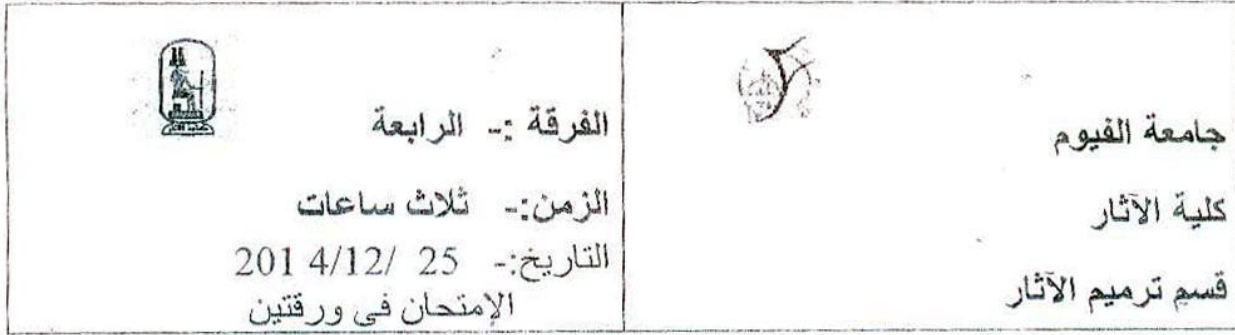 جامعة الفيوم
كلية الآثار
قسم ترميم الآثار
الفرقة :- الرابعة
الزمن:- ثلاث ساعات
التاريخ:- 25 /12/2014
الإمتحان فى ورقتين